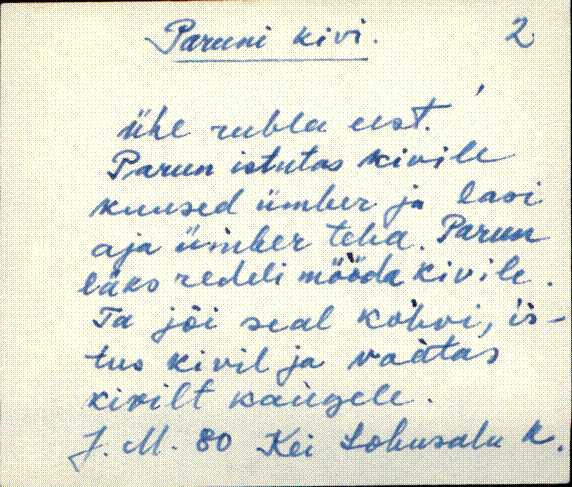 Paruni kivi. 2
ühe rubla eest.
Parun istutas kivile
kuused ümber ja lasi
aja ümber teha. Parun
läks redeli mööda kivile.
Ta jõi seal kohvi, is-
tus kivil ja vaatas
kivilt kaugele.
J. M. 80 Kei Lohusalu k.